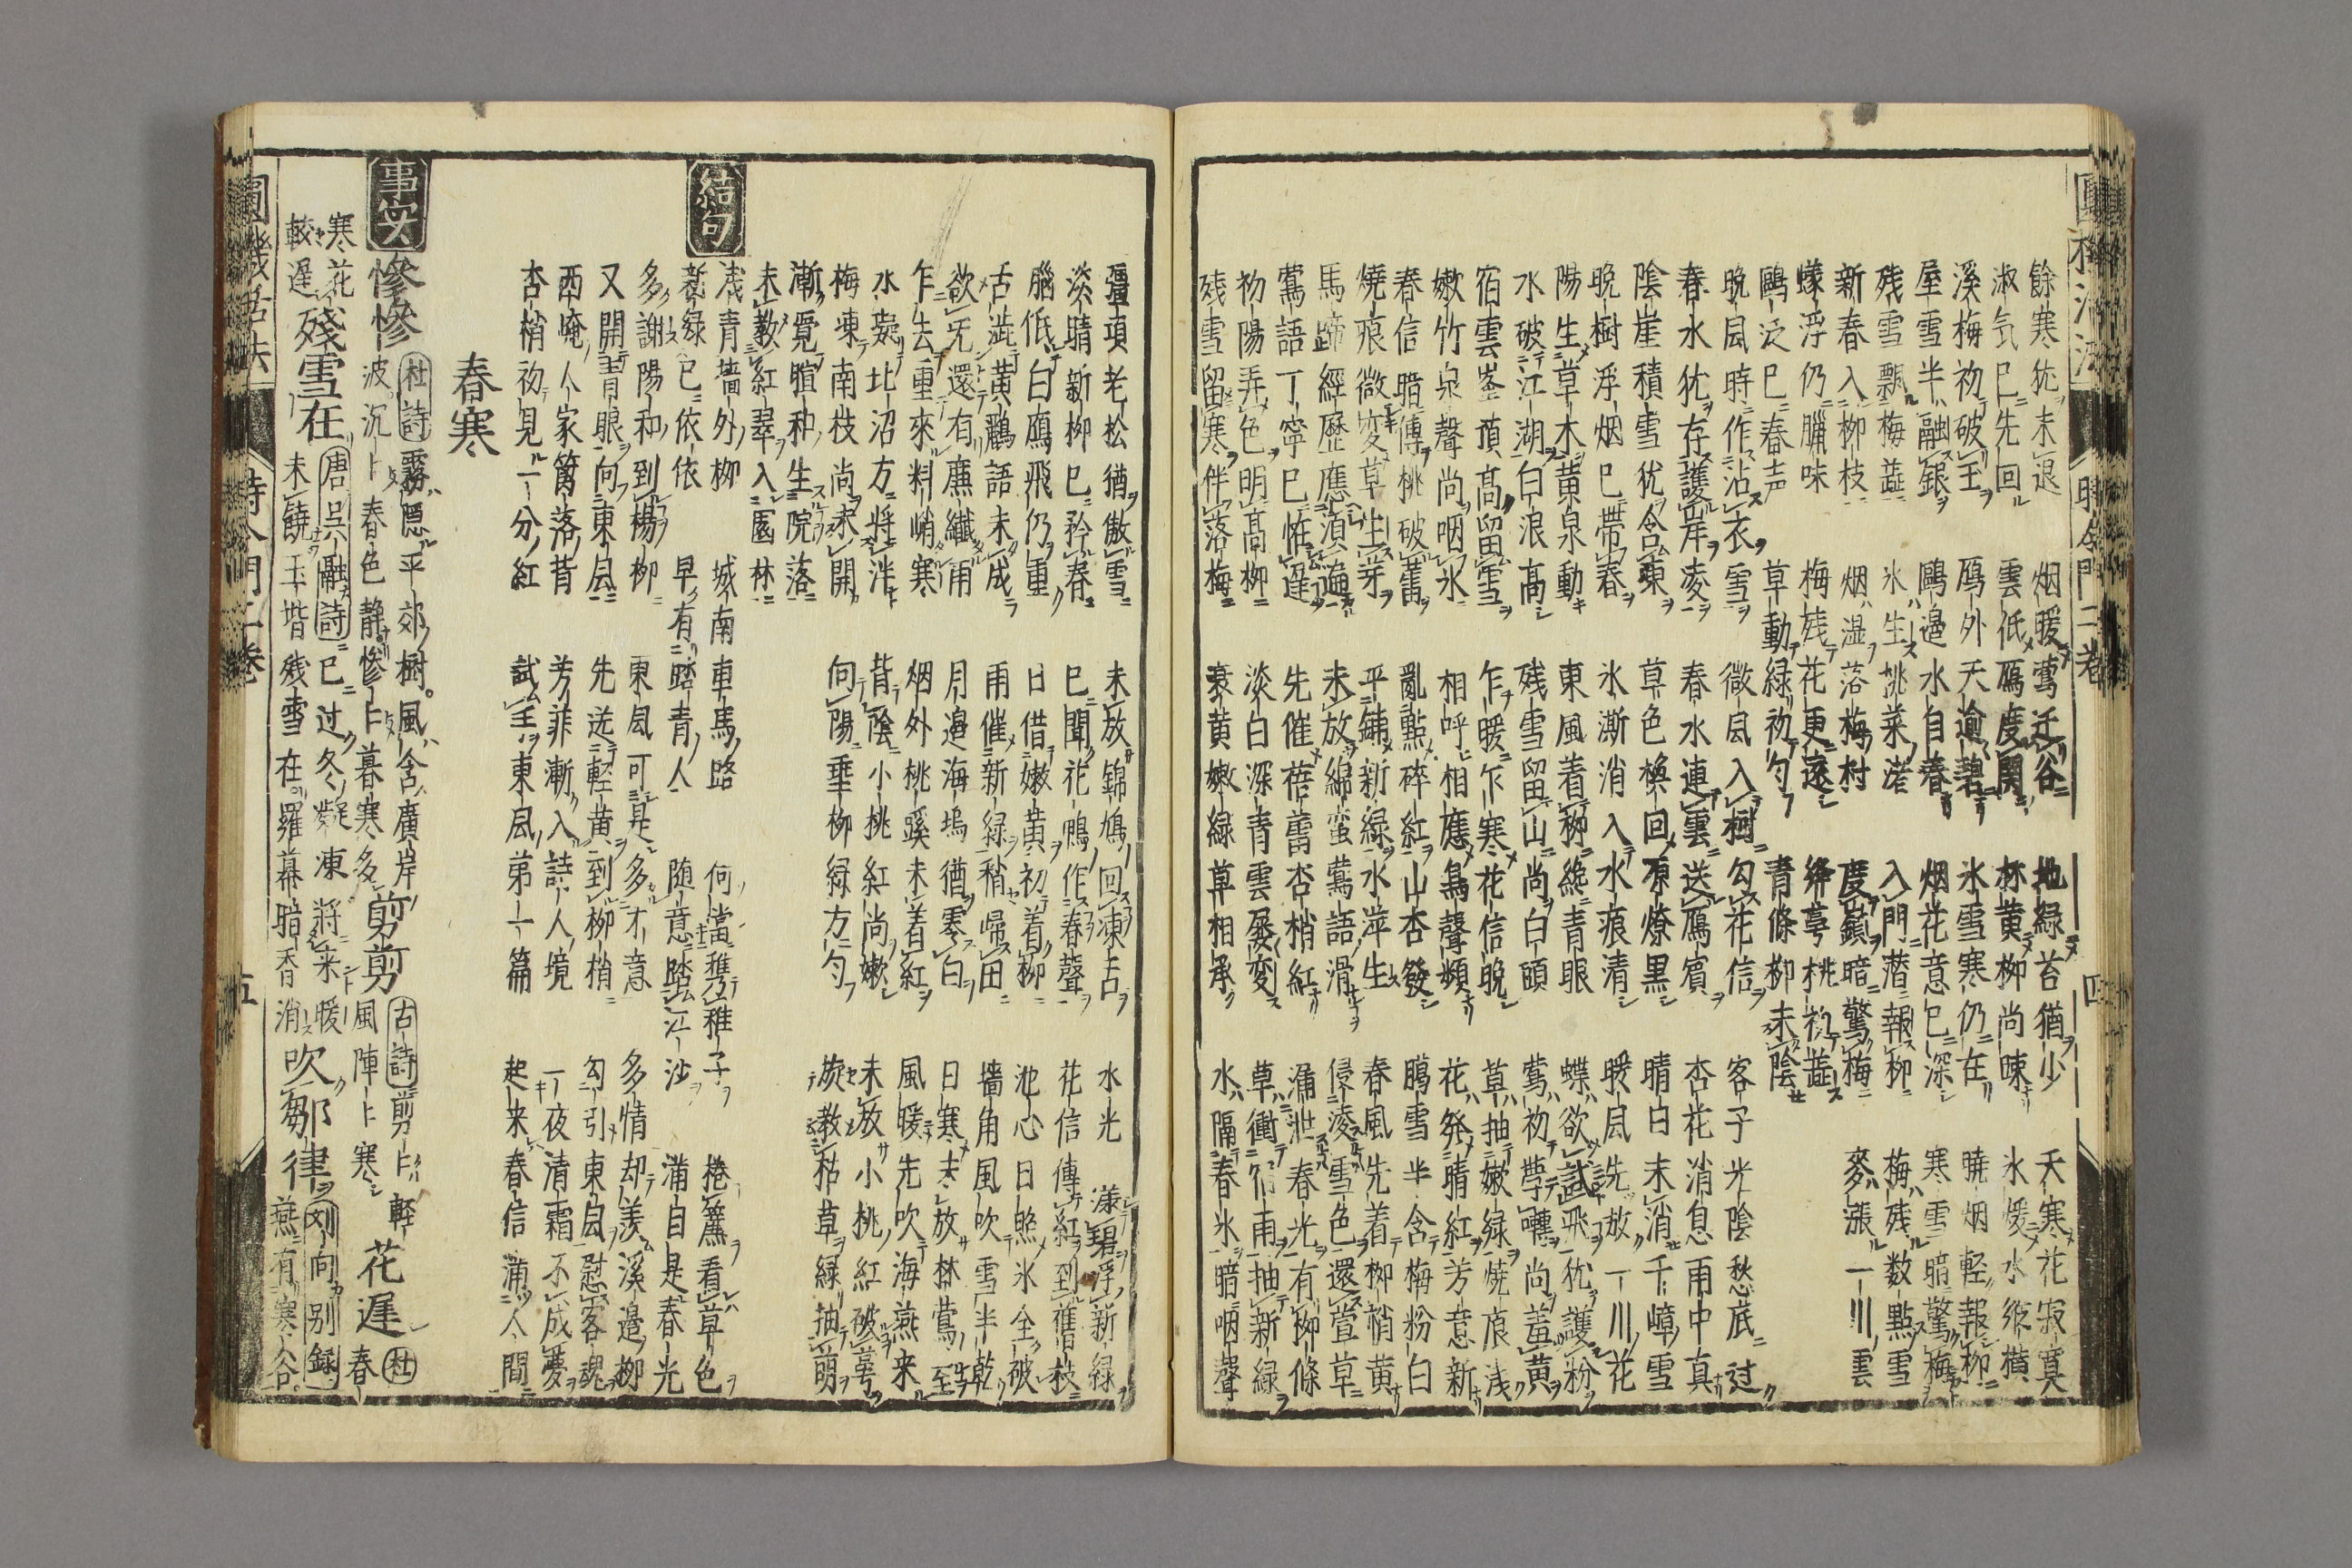 餘寒犹未退　烟暖鶯迁谷　地緑苔猶少　天寒花寂寞
淑気已先回　雲低鴈度関　林黄柳尚疎　氷煖水縱横
溪梅初破玉　鴈外天逾碧　氷雪寒仍在　暁烟輕報柳
屋雪半融銀　鷗邉水自春　烟花意已深　寒雪暗驚梅
残雪飄梅蕋　氷生挑菜渚　入門潜報柳　梅残数點雪
新春入柳枝　烟湿落梅村　度嶺暗驚梅　麥漲一川雲
蟻浮仍臘味　梅残花更遠　絳萼桃初蕋
鷗泛已春声　草動緑初勻　青條柳未陰
晩風時作沾衣雪　微風入樹勾花信　客子光陰愁底过
春水犹存護岸凌　春水連雲送鴈賓　杏花消息雨中真
陰崖積雪犹含凍　草色換回原燎黒　晴日未消千嶂雪
晩樹浮烟已帯春　氷澌消入水痕清　暖風先放一川花
陽生草木黄泉動　東風着柳纔青眼　蝶欲試飛犹護粉
水破江湖白浪高　残雪留山尚白頭　鶯初學囀尚羞黄
宿雲峯頂高留雪　乍暖乍寒花信晩　草抽嫩緑焼痕浅
嫩竹泉聲尚咽氷　相呼相應鳥聲頻　花発晴紅芳意新
春信暗傳桃破蕾　亂點碎紅山杏發　鵰雪半含梅粉白
焼痕微変草生芽　平鋪新緑水萍生　春風先着柳梢黄
馬蹄經歷應須遍　未放綿蛮鶯語滑　侵凌雪色還萱草
鶯語丁寧已恠遅　先催蓓蕾杏梢紅　漏泄春光有柳條
初陽弄色明髙柳　淡白深青雲屡変　草衝宿雨抽新緑
残雪留寒伴落梅　衰黄嫩緑草相承　水隔春氷暗咽聲
彊項老松猶傲雪　未放錦鳩回凍舌　水光漾碧浮新緑
淡晴新柳已矜春　已聞花鴨作春聲　花信傳紅到舊枝
腦低白鴈飛仍重　日借嫩黄初着柳　池心日照氷全破
舌澁黄鸝語未成　雨催新緑稍歸田　墻角風吹雪半乾
欲旡還有廉纖雨　月邉海塢猶零白　日寒未放林鶯至
乍去重來料峭寒　烟外桃蹊未着紅　風暖先吹海燕来
氷凝北沼方將泮　背陰小桃紅尚嫩　未放小桃紅破萼
梅凍南枝尚未開　向陽垂柳緑方勻　旋教枯草緑抽萌
漸覓暄和生院落
未教紅翠入園林
結句
浅青墻外柳　城南車馬路　何當携稚子　捲簾看草色
新緑已依依　早有踏青人　随意踏江沙　滿目是春光
多謝陽和到楊柳　東風可是多才意　多情却羨溪邉柳
又開青眼向東風　先送輕黄到柳梢　勾引東風慰客魂
西崦人家篱落背　芳菲漸入詩人境　一夜清霜不成夢
杏梢初見一分紅　試手東風第一篇　起来春信滿人間
春寒
事実　慘慘　杜詩　霧隠平郊樹風含廣岸波沉卜春色静慘卜暮寒多　剪剪　古詩　剪卜輕風陣卜寒　花遅　杜　春
寒花較遅　殘雪在　唐呉融詩　已过冬凝凍將来暖未饒玉堦残雪在羅幕暗香消　吹鄒律　刘向别録　燕有寒谷
圓機活法　時令門二巻　四
圓機活法　時令門二巻　五